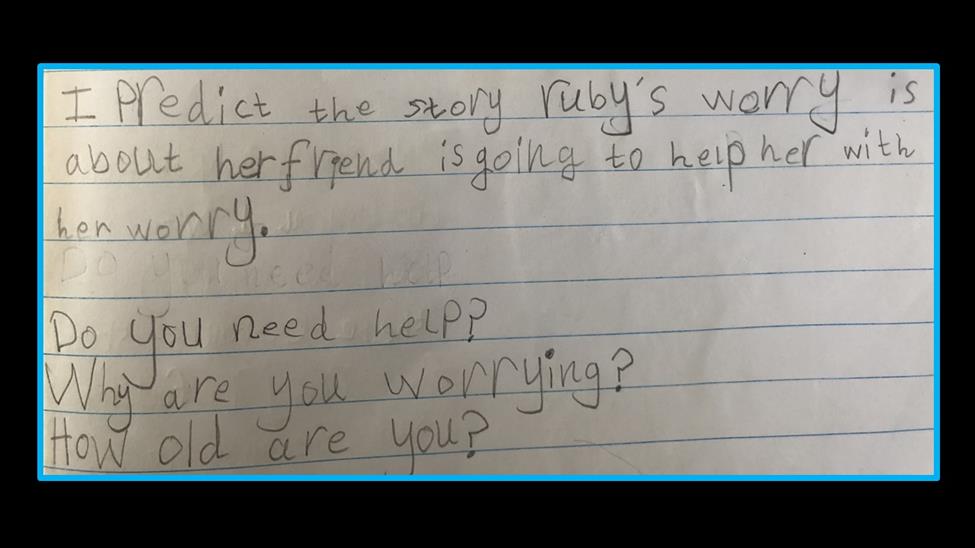 I Predict the story ruby's worry is
about her friend is going to help her with
her worry.
Do you need help
Do you need help?
Why are you worrying?
How old are you?